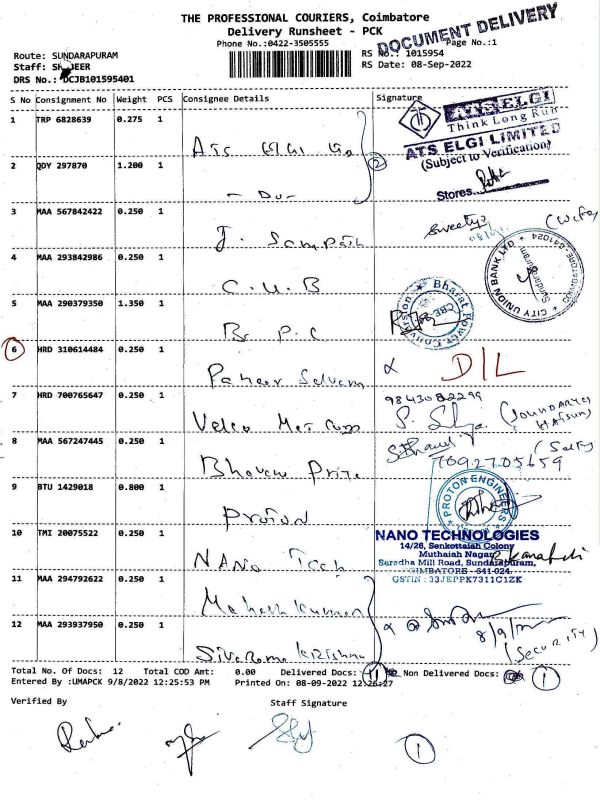 THE PROFESSIONAL COURIERS, Coimbatore
Delivery Runsheet - PCK
DOCUMENT DELIVERY
Phone No.:0422-3505555
Page No.:1
Route: SUNDARAPURAM
RS No.: 1015954
Staff: SAJEER
RS Date: 08-Sep-2022
DRS No.: DCJB101595401
S No Consignment No Weight PCS Consignee Details Signature
1 TRP 6828639 0.275 1
ATS ELGI
Think Long Run
ATS ELGI LIMITED
(Subject to Verification)
Stores
2 QDY 297870 1.200 1
- Do -
3 MAA 567842422 0.250 1 J. Sampath
Sweety
(Wife)
4 MAA 293842986 0.250 1 C.U.B
CITY UNION BANK LTD
Sundarapuram
5 MAA 290379350 1.350 1 B P C
Bharat Power Conversion
CBE
6 HRD 310614484 0.250 1
D/L
7 HRD 700765647 0.250 1
9843082299
8 MAA 567247445 0.250 1
7092705659
9 BTU 1429018 0.800 1 Proton
PROTON ENGINEERS
10 TMI 20075522 0.250 1 NANO Tech
NANO TECHNOLOGIES
14/26, Senkottaiah Colony
Muthaiah Nagar
Saradha Mill Road, Sundarapuram,
COIMBATORE - 641 024.
GSTIN : 33JEPPK7311C1ZK
11 MAA 294792622 0.250 1 Mahesh Kumar
12 MAA 293937950 0.250 1 Siva Rama Krishna
8/9/22
(SECURITY)
Total No. Of Docs: 12 Total COD Amt: 0.00 Delivered Docs: 11 Non Delivered Docs: 1
Entered By :UMAPCK 9/8/2022 12:25:53 PM Printed On: 08-09-2022 12:26:27
Verified By Staff Signature
1